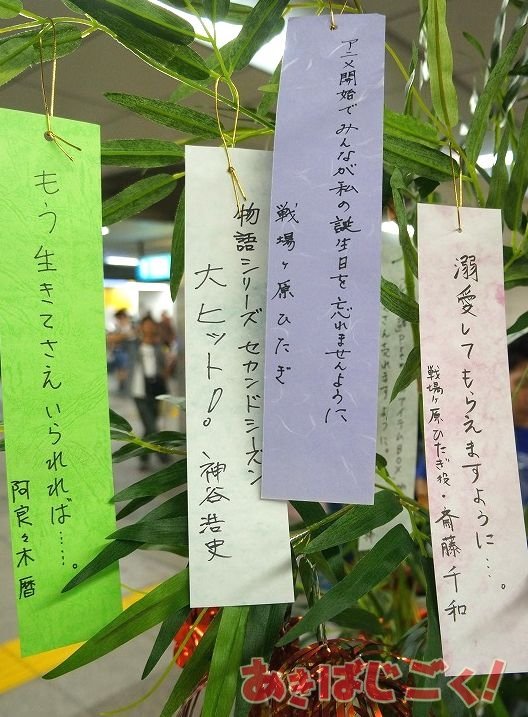 アニメ開始でみんなが私の誕生日を忘れませんように
戦場ヶ原ひたぎ
溺愛してもらえますように…。
戦場ヶ原ひたぎ役・斎藤千和
物語シリーズセカンドシーズン
大ヒット!○
神谷浩史
もう生きてさえいられれば……。
阿良々木暦
あきばじごく!